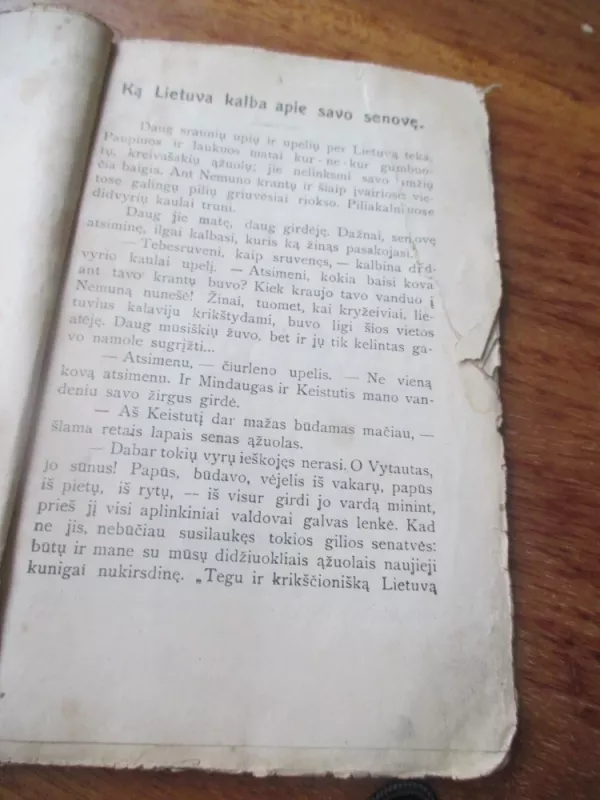 Ką Lietuva kalba apie savo senovę.
Daug sraunių upių ir upelių per Lietuvą teka.
Paupinos ir laukuos matai kur-ne-kur gumbuo-
tų, kreivašakių ąžuolų; jie nelinksmi savo amžių
čia baigia. Ant Nemuno krantų ir šiaip įvairiose vie-
tose galingų pilių griuvėsiai riokso. Piliakalniuose
didvyrių kaulai truni.
Daug jie matę, daug girdėję. Dažnai, senovę
atsiminę, ilgai kalbasi, kuris ką žinąs pasakojasi.
— Tebesruveni, kaip sruvenęs, — kalbina did-
vyrio kaulai upelį. — Atsimeni, kokia baisi kova
ant tavo krantų buvo? Kiek kraujo tavo vanduo į
Nemuną nunešė! Žinai, tuomet, kai kryžeiviai, lie-
tuvius kalaviju krikštydami, buvo ligi šios vietos
atėję. Daug mūsiškių žuvo, bet ir jų tik kelintas ga-
vo namole sugrįžti...
— Atsimenu, — čiurleno upelis. — Ne vieną
kovą atsimenu. Ir Mindaugas ir Keistutis mano van-
deniu savo žirgus girdė.
— Aš Keistutį dar mažas būdamas mačiau, —
šlama retais lapais senas ąžuolas.
— Dabar tokių vyrų ieškojęs nerasi. O Vytautas,
jo sūnus! Papūs, būdavo, vėjelis iš vakarų, papūs
iš pietų, iš rytų, — iš visur girdi jo vardą minint,
prieš jį visi aplinkiniai valdovai galvas lenkė. Kad
ne jis, nebūčiau susilaukęs tokios gilios senatvės:
būtų ir mane su mūsų didžiuokliais ąžuolais naujieji
kunigai nukirsdinę. „Tegu ir krikščionišką Lietuvą